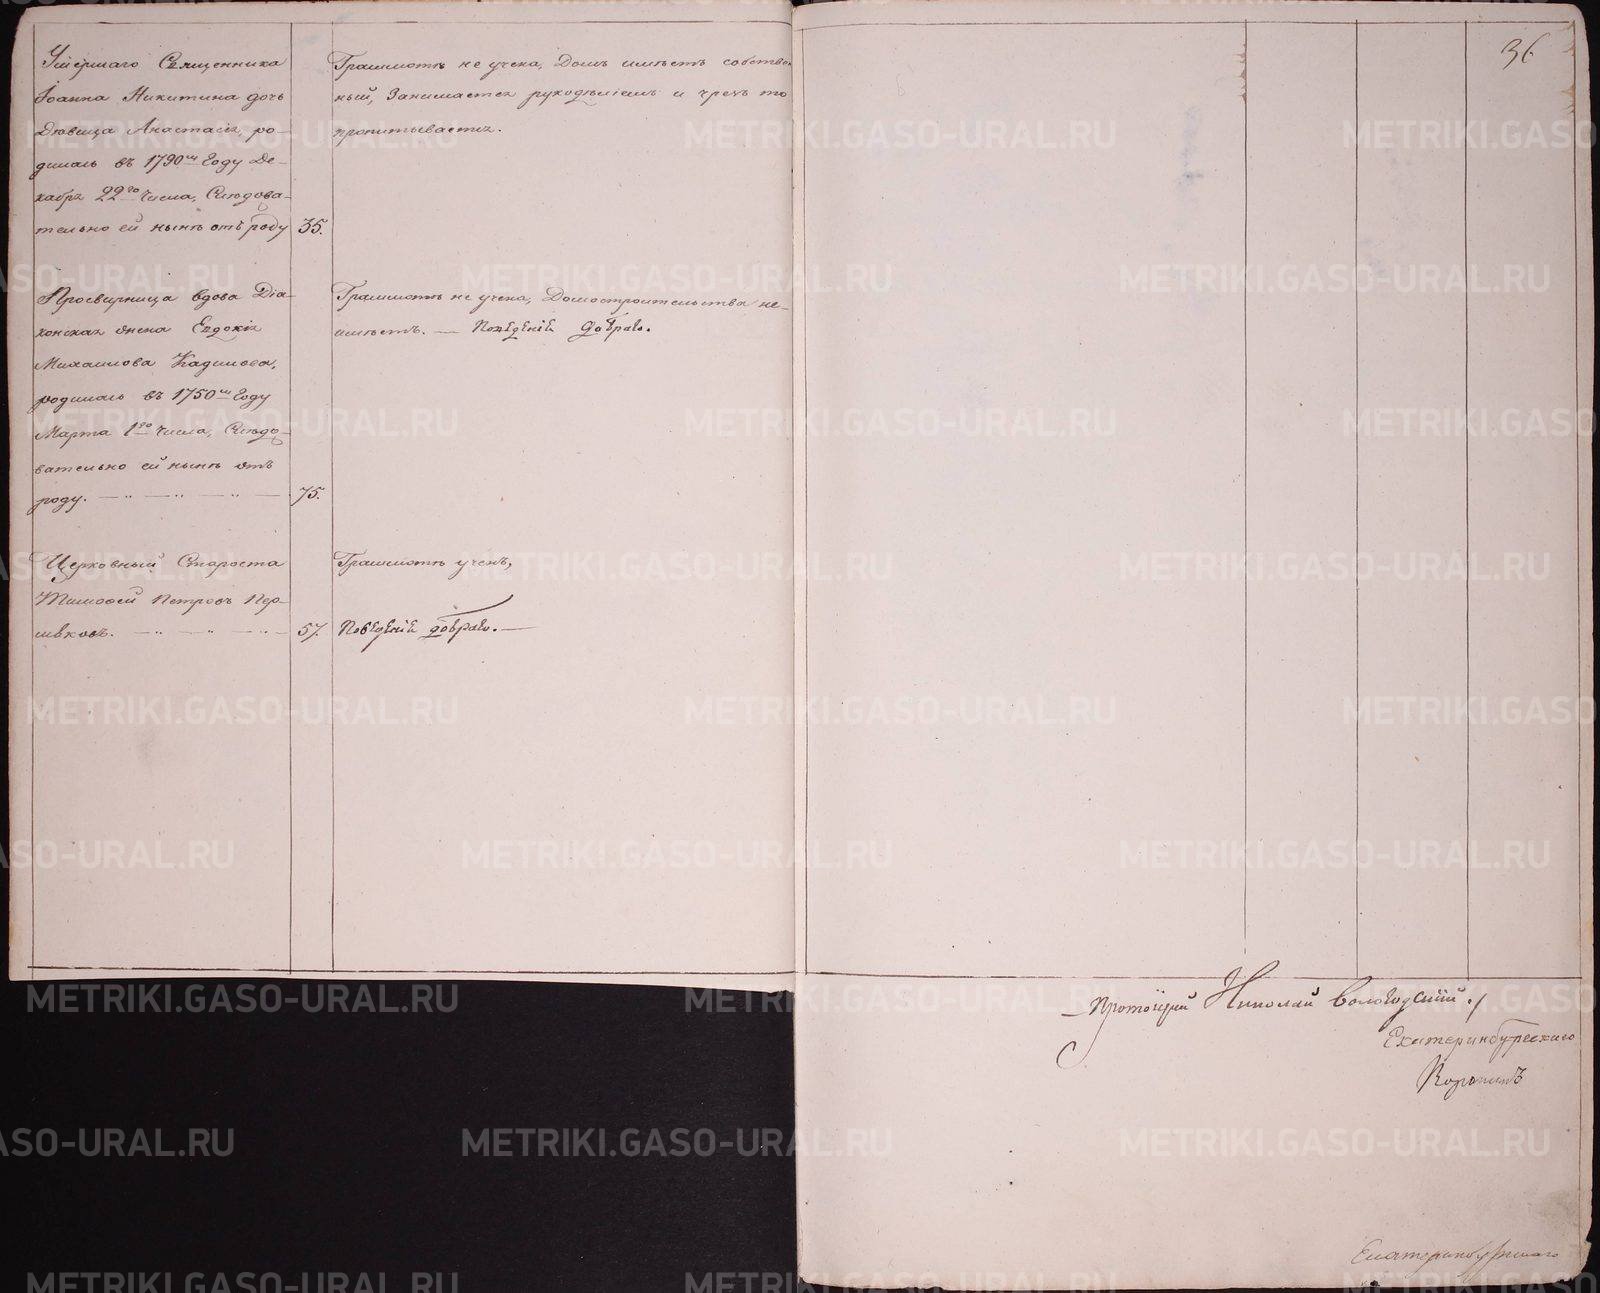 36
Умершаго Священника
Іоанна Никитина дочь
Дѣвица Анастасія, ро-
дилась въ 1790мъ Году Де-
кабря 22го Числа, Слѣдова-
тельно ей нынѣ отъ роду 35.
Граммотѣ не учена, Домъ имѣетъ собствен-
ный, Занимается рукодѣліемъ и чрезъ то
пропитывается.
Просвирница вдова Діа-
конская жена Евдокія
Михаилова
родилась въ 1750мъ Году
Марта 1го Числа, Слѣдо-
вательно ей нынѣ отъ
роду. 75.
Граммотѣ не учена, Домостроительства не-
имѣетъ. — Поведеніе добраго.
Церковный Староста
Тимофей Петровъ Пер-
шаковъ. 57.
Граммотѣ ученъ,
Поведенія добраго. —
Протоіерей Николай Вологодскій.
Екатеринбургскаго
Екатеринбургскаго
METRIKI.GASO-URAL.RU